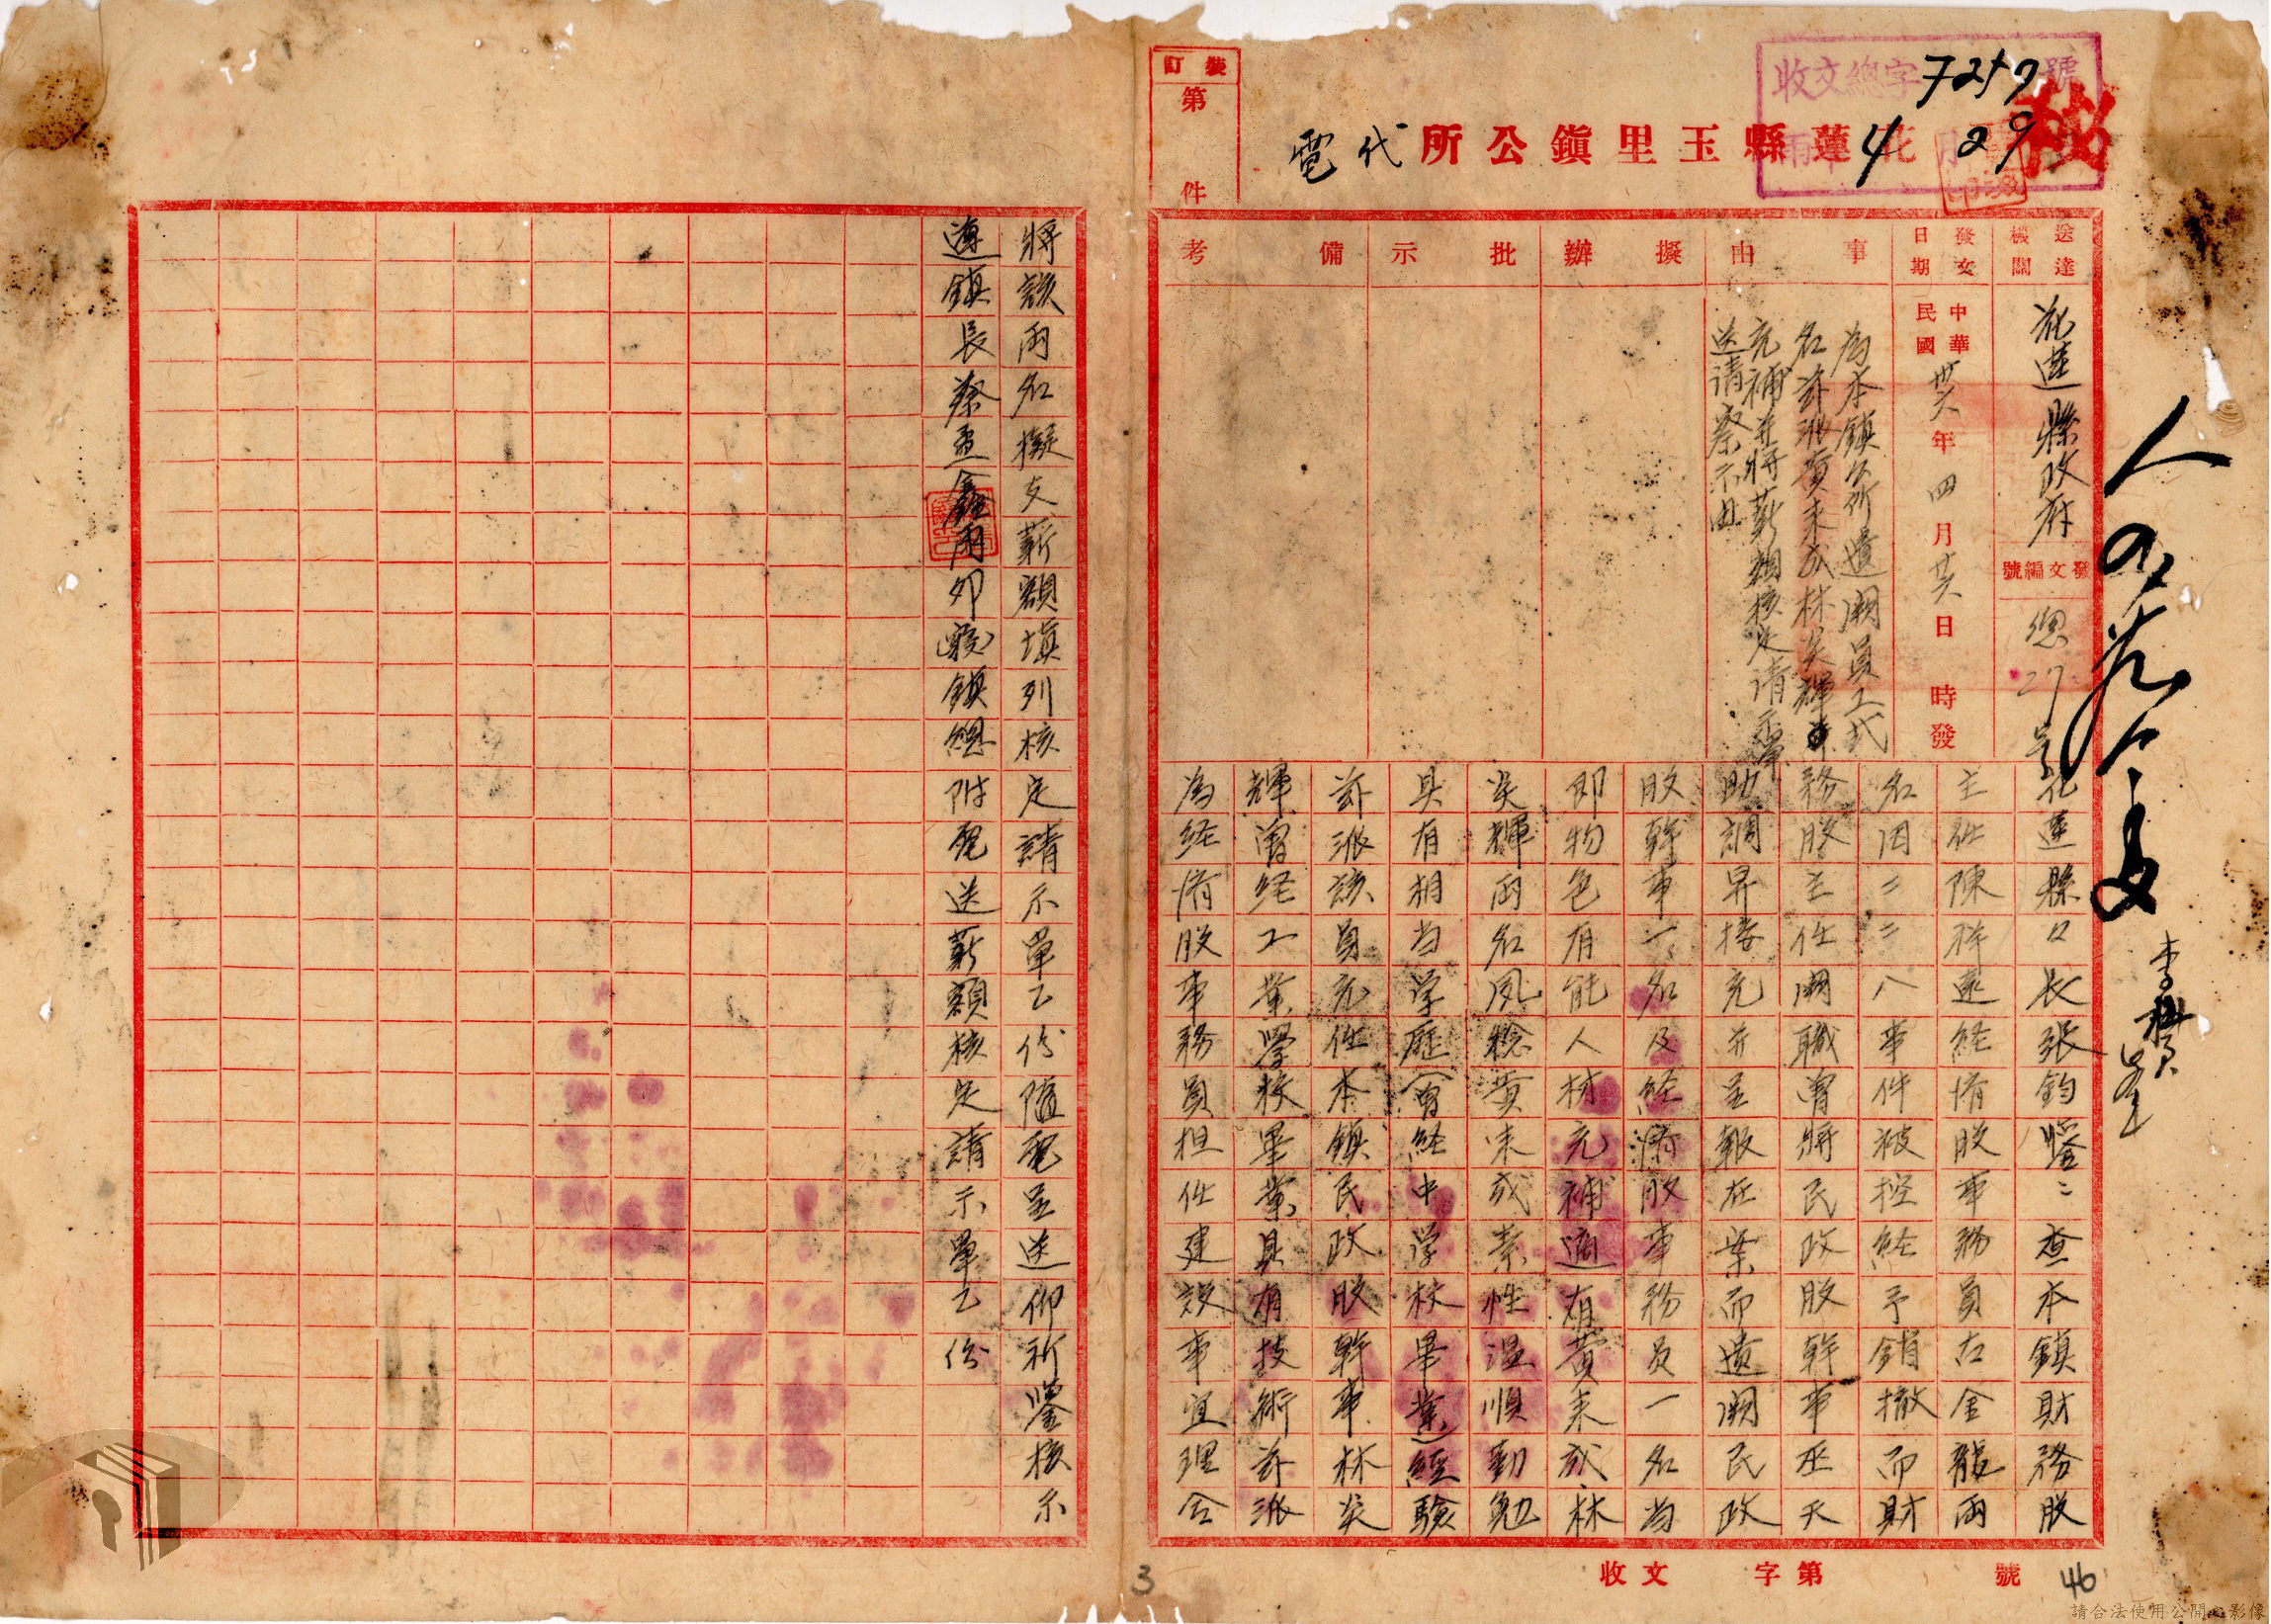 裝訂
第
件
收文總字7257號
4 29
秘
花蓮縣玉里鎮公所代電
送達機關
花蓮縣政府
發文編號
總27號
發文日期
中華民國卅六年四月廿六日 時發
事由
為本鎮公所遺闕員工弍
名薪派黃来成林炎輝
充補并將薪額核定請示單
送請察示由
擬辦
批示
備考
花蓮縣口長張鈞鑒：查本鎮財務股
主任陳祥遠経済股事務員古金龍両
名因二二八事件被控経予銷撤而財
務股主任闕職曾將民政股幹事巫天
助調昇接充并呈報在案而遺闕民政
股幹事一名及経済股事務員一名為
即物色有能人材充補適有黄来成林
炎輝両名夙稔黄来成素性温順勤勉
具有相当学歴（曾経中学校畢業）経驗
薪派該員充任本鎮民政股幹事林炎
輝曾経工業學校畢業具有技術薪派
為経済股事務員担任建設事宜理合
將該両名擬支薪額填列核定請示單乙份隨電呈送仰祈鑒核示
遵鎮長蔡孟鑫雨卯 鎮總附電送薪額核定請示單乙份
收文 字第 號
3
46
請合法使用公開之影像